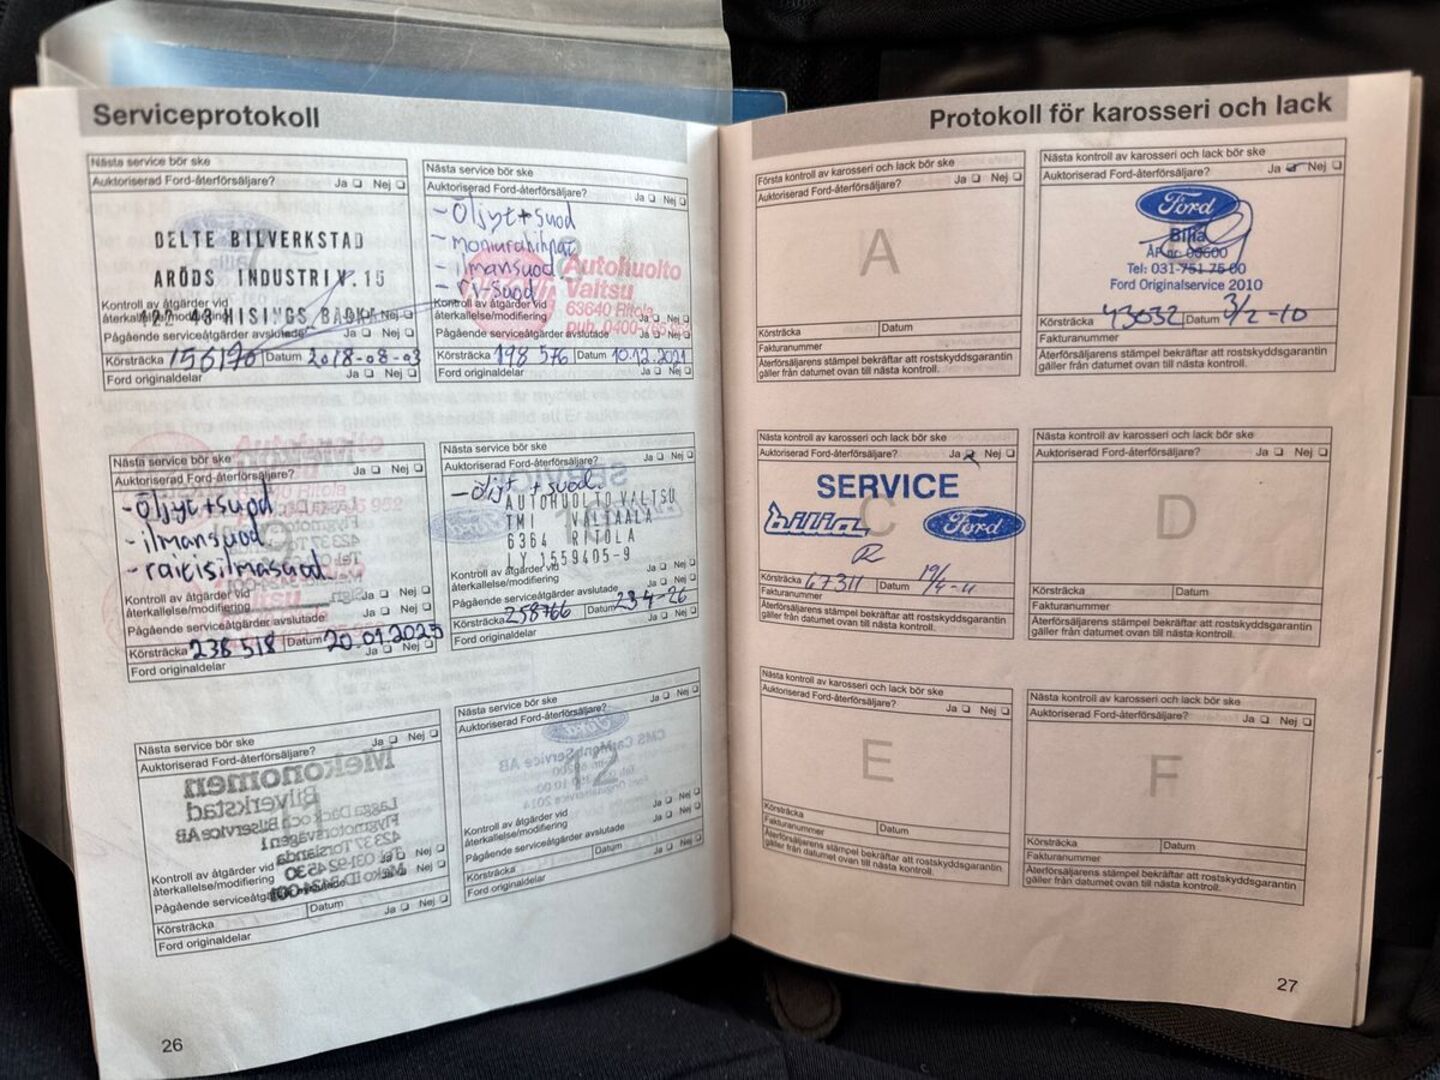 Serviceprotokoll
Nästa service bör ske
Auktoriserad Ford-återförsäljare? Ja Nej
DELTE BILVERKSTAD
ARÖDS INDUSTRIV.15
422 43 HISINGS BACKA
Kontroll av åtgärder vid
återkallelse/modifiering Ja Nej
Pågående serviceåtgärder avslutade Ja Nej
Körsträcka 156170 Datum 2018-08-03
Ford originaldelar Ja Nej
Nästa service bör ske
Auktoriserad Ford-återförsäljare? Ja Nej
- Öljyt + suod
- ilmansuod.
- rv-suod
Autohuolto
Valtsu
63640 Ritola
puh. 0400-765 952
Kontroll av åtgärder vid
återkallelse/modifiering Ja Nej
Pågående serviceåtgärder avslutade Ja Nej
Körsträcka 198 576 Datum 10.12.2021
Ford originaldelar Ja Nej
Nästa service bör ske
Auktoriserad Ford-återförsäljare? Ja Nej
- öljyt + suod
- ilmansuod.
- raitisilmasuod.
Kontroll av åtgärder vid
återkallelse/modifiering Ja Nej
Pågående serviceåtgärder avslutade Ja Nej
Körsträcka 238 518 Datum 20.01.2025
Ford originaldelar Ja Nej
Nästa service bör ske
Auktoriserad Ford-återförsäljare? Ja Nej
- öljt + suod.
AUTOHUOLTO VALTSU
TMI VALTAALA
6364 RITOLA
LY 1559405-9
Kontroll av åtgärder vid
återkallelse/modifiering Ja Nej
Pågående serviceåtgärder avslutade Ja Nej
Körsträcka 258766 Datum 23-4-26
Ford originaldelar
Nästa service bör ske
Auktoriserad Ford-återförsäljare? Ja Nej
Kontroll av åtgärder vid
återkallelse/modifiering Ja Nej
Pågående serviceåtgärder avslutade Ja Nej
Körsträcka Datum Ja Nej
Ford originaldelar
Nästa service bör ske
Auktoriserad Ford-återförsäljare? Ja Nej
12
Kontroll av åtgärder vid
återkallelse/modifiering Ja Nej
Pågående serviceåtgärder avslutade Ja Nej
Körsträcka Datum Ja Nej
Ford originaldelar
26
Protokoll för karosseri och lack
Första kontroll av karosseri och lack bör ske
Auktoriserad Ford-återförsäljare? Ja Nej
A
Körsträcka Datum
Fakturanummer
Återförsäljarens stämpel bekräftar att rostskyddsgarantin
gäller från datumet ovan till nästa kontroll.
Nästa kontroll av karosseri och lack bör ske
Auktoriserad Ford-återförsäljare? Ja Nej
Ford
Bilia
ÅF nr: 00600
Tel: 031-751 75 00
Ford Originalservice 2010
Körsträcka 43032 Datum 3/2-10
Återförsäljarens stämpel bekräftar att rostskyddsgarantin
gäller från datumet ovan till nästa kontroll.
Nästa kontroll av karosseri och lack bör ske
Auktoriserad Ford-återförsäljare? Ja Nej
C
SERVICE
bilia Ford
Körsträcka 67311 Datum 19/4-11
Fakturanummer
Återförsäljarens stämpel bekräftar att rostskyddsgarantin
gäller från datumet ovan till nästa kontroll.
Nästa kontroll av karosseri och lack bör ske
Auktoriserad Ford-återförsäljare? Ja Nej
D
Körsträcka Datum
Fakturanummer
Återförsäljarens stämpel bekräftar att rostskyddsgarantin
gäller från datumet ovan till nästa kontroll.
Nästa kontroll av karosseri och lack bör ske
Auktoriserad Ford-återförsäljare? Ja Nej
E
Körsträcka
Fakturanummer Datum
Återförsäljarens stämpel bekräftar att rostskyddsgarantin
gäller från datumet ovan till nästa kontroll.
Nästa kontroll av karosseri och lack bör ske
Auktoriserad Ford-återförsäljare? Ja Nej
F
Körsträcka Datum
Fakturanummer
Återförsäljarens stämpel bekräftar att rostskyddsgarantin
gäller från datumet ovan till nästa kontroll.
27